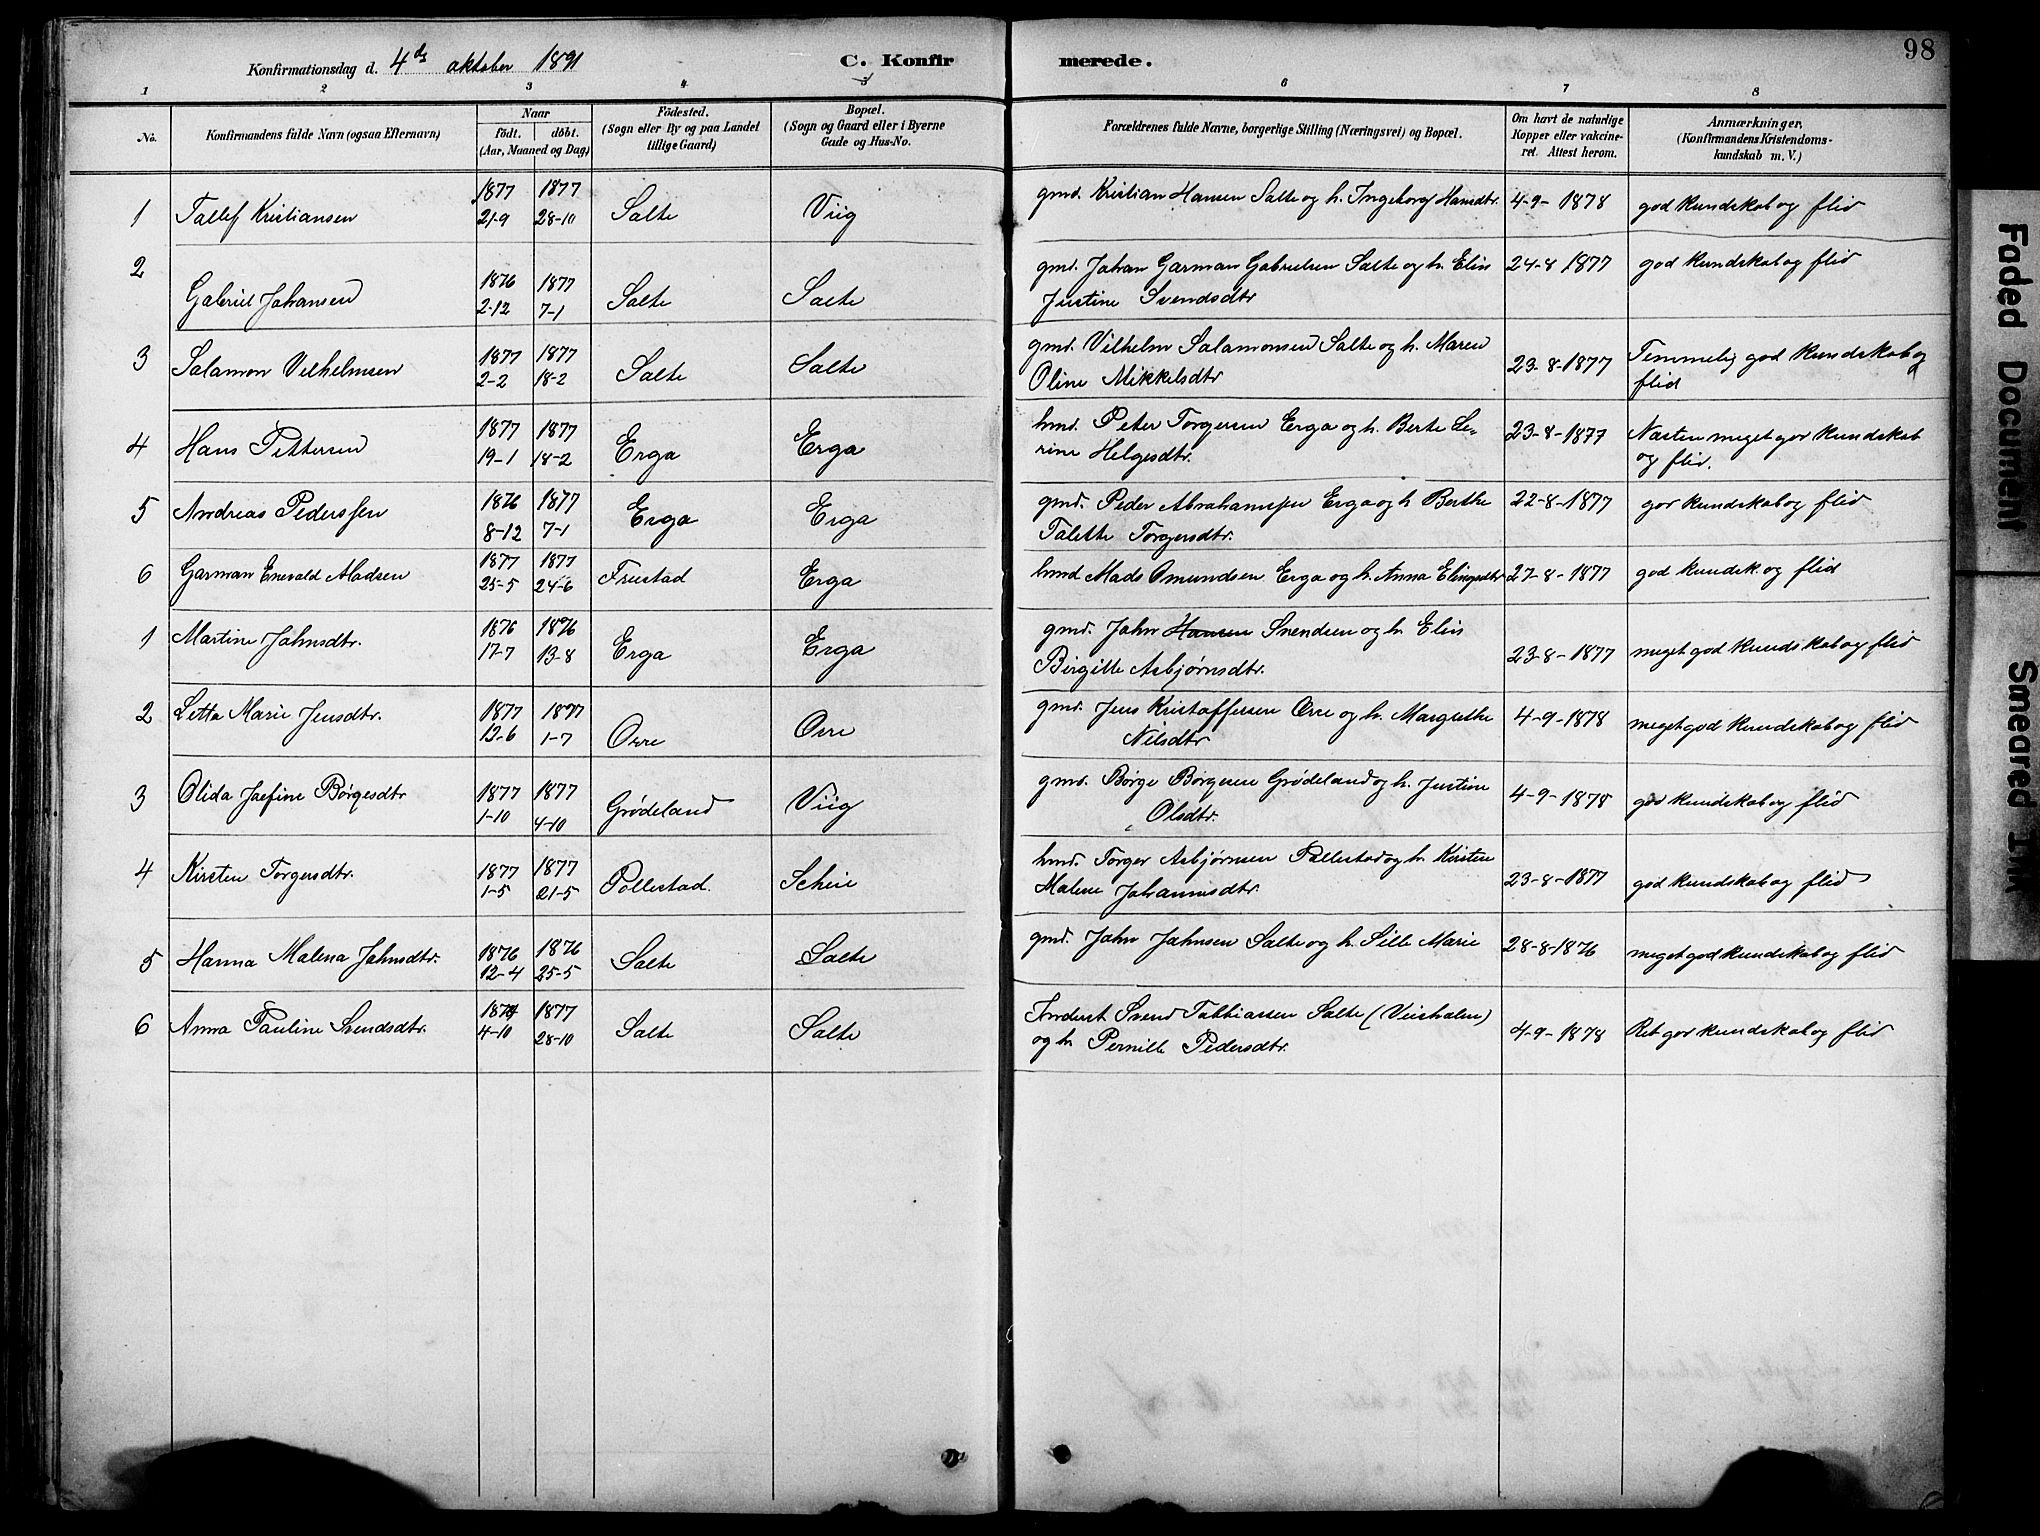 98
Konfirmationsdag d. 4de oktober 1891 C. Konfirmerede.
1 2 3 4 5 6 7 8
No. Konfirmandens fulde Navn (ogsaa Efternavn) Naar födt. döbt. (Aar, Maaned og Dag) Födested. (Sogn eller By og paa Landet tillige Gaard) Bopæl. (Sogn og Gaard eller i Byerne Gade og Hus-No. Forældrenes fulde Navne, borgerlige Stilling (Næringsvei) og Bopæl. Om havt de naturlige Kopper eller vakcineret. Attest herom. Anmærkninger, (Konfirmandens Kristendomskundskab m. V.)
1 Tallef Kristiansen 1877 21-9 1877 28-10 Salte Viig gmd. Kristian Hansen Salte og h. Ingeborg Hansdtr. 4-9-1878 god kundskab og flid
2 Gabriel Johansen 1876 2-12 1877 7-1 Salte Salte gmd. Johan Garman Gabrielsen Salte og h. Elin
Justine Svendsdtr 24-8 1877 god kundskab og flid
3 Salamon Vilhelmsen 1877 2-2 1877 18-2 Salte Salte gmd. Vilhelm Salamonsen Salte og h. Maren
Oline Mikkelsdtr 23-8-1877 Temmelig god kundskab og
flid
4 Hans Pettersen 1877 19-1 1877 18-2 Erga Erga hmd. Peter Torgersen Erga og h. Berte Se-
rine Helgesdtr. 23-8-1877 Næsten meget god kundskab
og flid.
5 Andreas Pederssen 1876 8-12 1877 7-1 Erga Erga gmd. Peder Abrahamsen Erga og h Berthe
Talette Torgersdtr. 22-8-1877 god kundskab og flid
6 Garman Enevald Madsen 1877 25-5 1877 24-6 Fruestad Erga hmd Mads Omundsen Erga og h. Anna 27-8-1877 god kundsk. og flid
1 Martine Johnsdtr. 1876 17-7 1876 13-8 Erga Erga gmd. John Hansen Svendsen og h. Elin
Birgitte Asbjørnsdtr. 23-8-1877 meget god kundskab og flid
2 Letta Marie Jensdtr. 1877 12-6 1877 1-7 Orre Orre gmd. Jens Kristoffersen Orre og h. Margrethe
Nilsdtr 4-9-1878 meget god kundskab og flid
3 Olida Josefine Børgesdtr 1877 1-10 1877 4-10 Grødeland Viig gmd. Børge Børgesen Grødeland og h. Justine
Olsdtr. 4-9-1878 god kundskab og flid
4 Kirsten Torgersdtr. 1877 1-5 1877 21-5 Pollestad. Scheie hmd. Torger Asbjørnsen Pollestad og h. Kirsten
Malene Johannesdtr. 23-8-1877 god kundskab og flid
5 Hanna Malena Johnsdtr. 1876 12-4 1876 25-5 Salte Salte gmd. John Johnsen Salte og h. Sille Marie 28-8-1876 meget god kundskab og flid
6 Anna Pauline Svendsdtr. 1877 4-10 1877 28-10 Salte Salte Inderst Svend Tobbiassen Salte (Veisholen)
og h. Pernille Pedersdtr. 4-9-1878 Ret god kundskab og flid
Faded Document
Smeared Ink